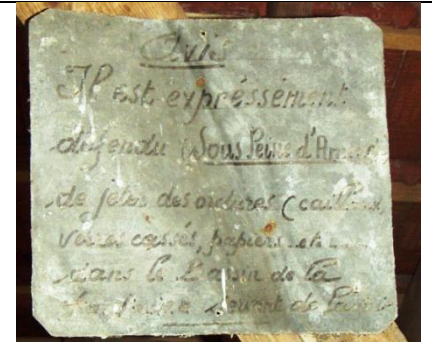 Avis
Il est expréssément
défendu (Sous Peine d'Amende
de jeter des ordures (cailloux,
verres cassés, papiers etc
dans le Bassin de la
devant